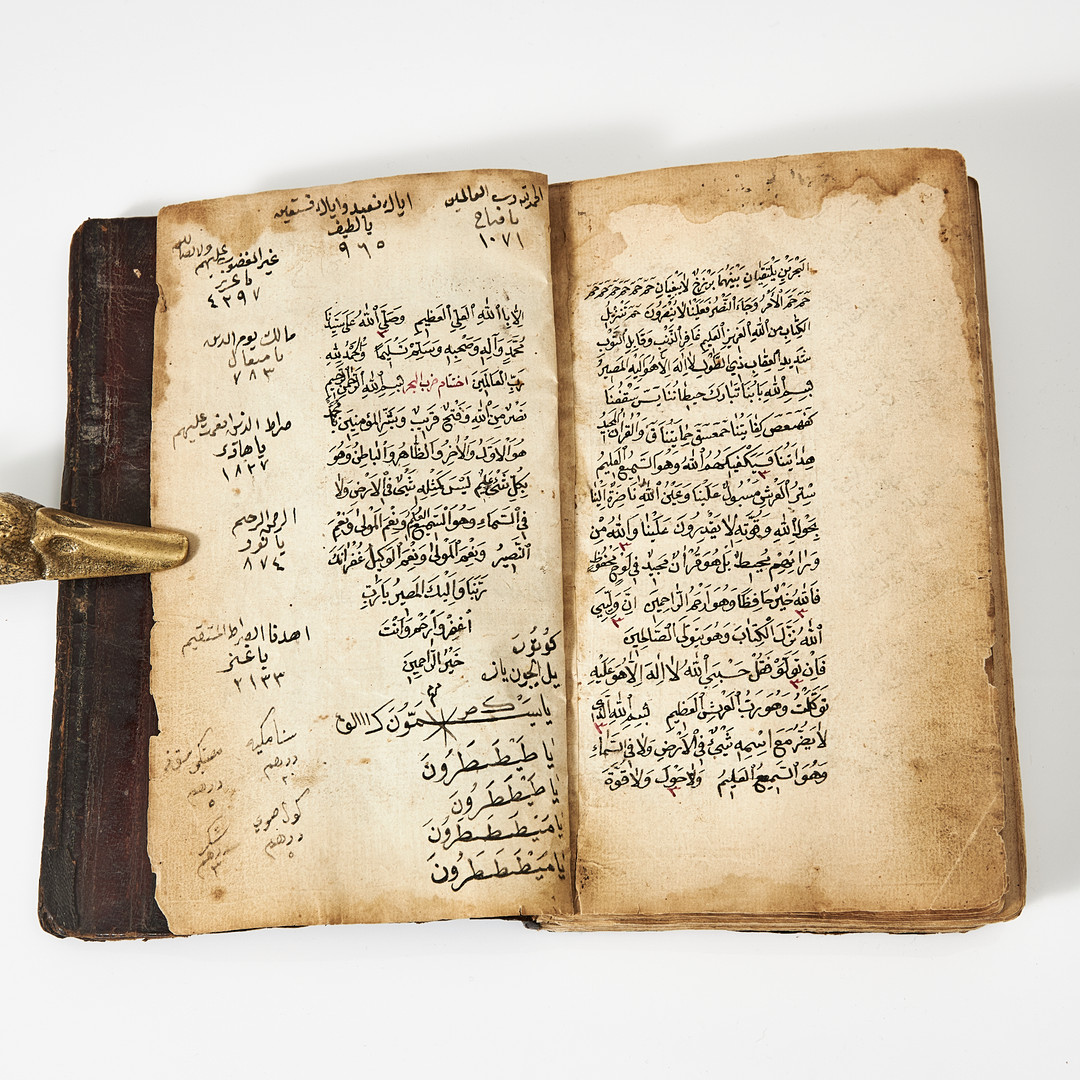 البحرين يلتقيان بينهما برزخ لا يبغيان حم حم حم حم حم حم
حم حم الأمر وجاء النصر فعلينا لا ينصرون حم تنزيل
الكتاب من الله العزيز العليم غافر الذنب وقابل التوب
شديد العقاب ذي الطول لا اله الا هو اليه المصير
بسم الله بابنا تبارك حيطاننا يس سقفنا
كهيعص كفايتنا حمعسق حمايتنا ق والقران المجيد
فسيكفيكهم الله وهو السميع العليم
ستر العرش مسبول علينا وعين الله ناظرة الينا
بحول الله وقوته لا يقدرون علينا والله من
ورائهم محيط بل هو قران مجيد في لوح محفوظ
فالله خير حافظا وهو ارحم الراحمين ان وليي
الله نزل الكتاب وهو يتولى الصالحين
فان تولوا فقل حسبي الله لا اله الا هو عليه
توكلت وهو رب العرش العظيم بسم الله الذي
لا يضر مع اسمه شيئ في الارض ولا في السماء
وهو السميع العليم ولا حول ولا قوة
الحمد لله رب العالمين
يا فتاح
١٠٧١
اياك نعبد واياك نستعين
يا لطيف
٩٦٥
غير المغضوب عليهم ولا الضالين
يا عزيز
٤٢٩٧
مالك يوم الدين
٧٨٣
صراط الذين انعمت عليهم
١٨٢٧
الرحمن الرحيم
٨٧٤
اهدنا الصراط المستقيم
٢١٣٣
سنامكيه
درهم
درهم
درهم
شكر
درهم
الا بالله العلي العظيم وصلى الله على سيدنا
محمد واله وصحبه وسلم تسليما والحمد لله
رب العالمين اختتام حزب البحر بسم الله الرحمن الرحيم
نصر من الله وفتح قريب وبشر المؤمنين يا محمد
هو الاول والاخر والظاهر والباطن وهو
بكل شيئ عليم ليس كمثله شيئ في الارض ولا
في السماء وهو السميع العليم ونعم المولى ونعم
النصير ونعم المولى ونعم الوكيل غفرانك
ربنا واليك المصير يا رب
اغفر وارحم وانت
خير الراحمين
يا طيططرون
يا طيططرون
يا ميططرون
يا ميططرون